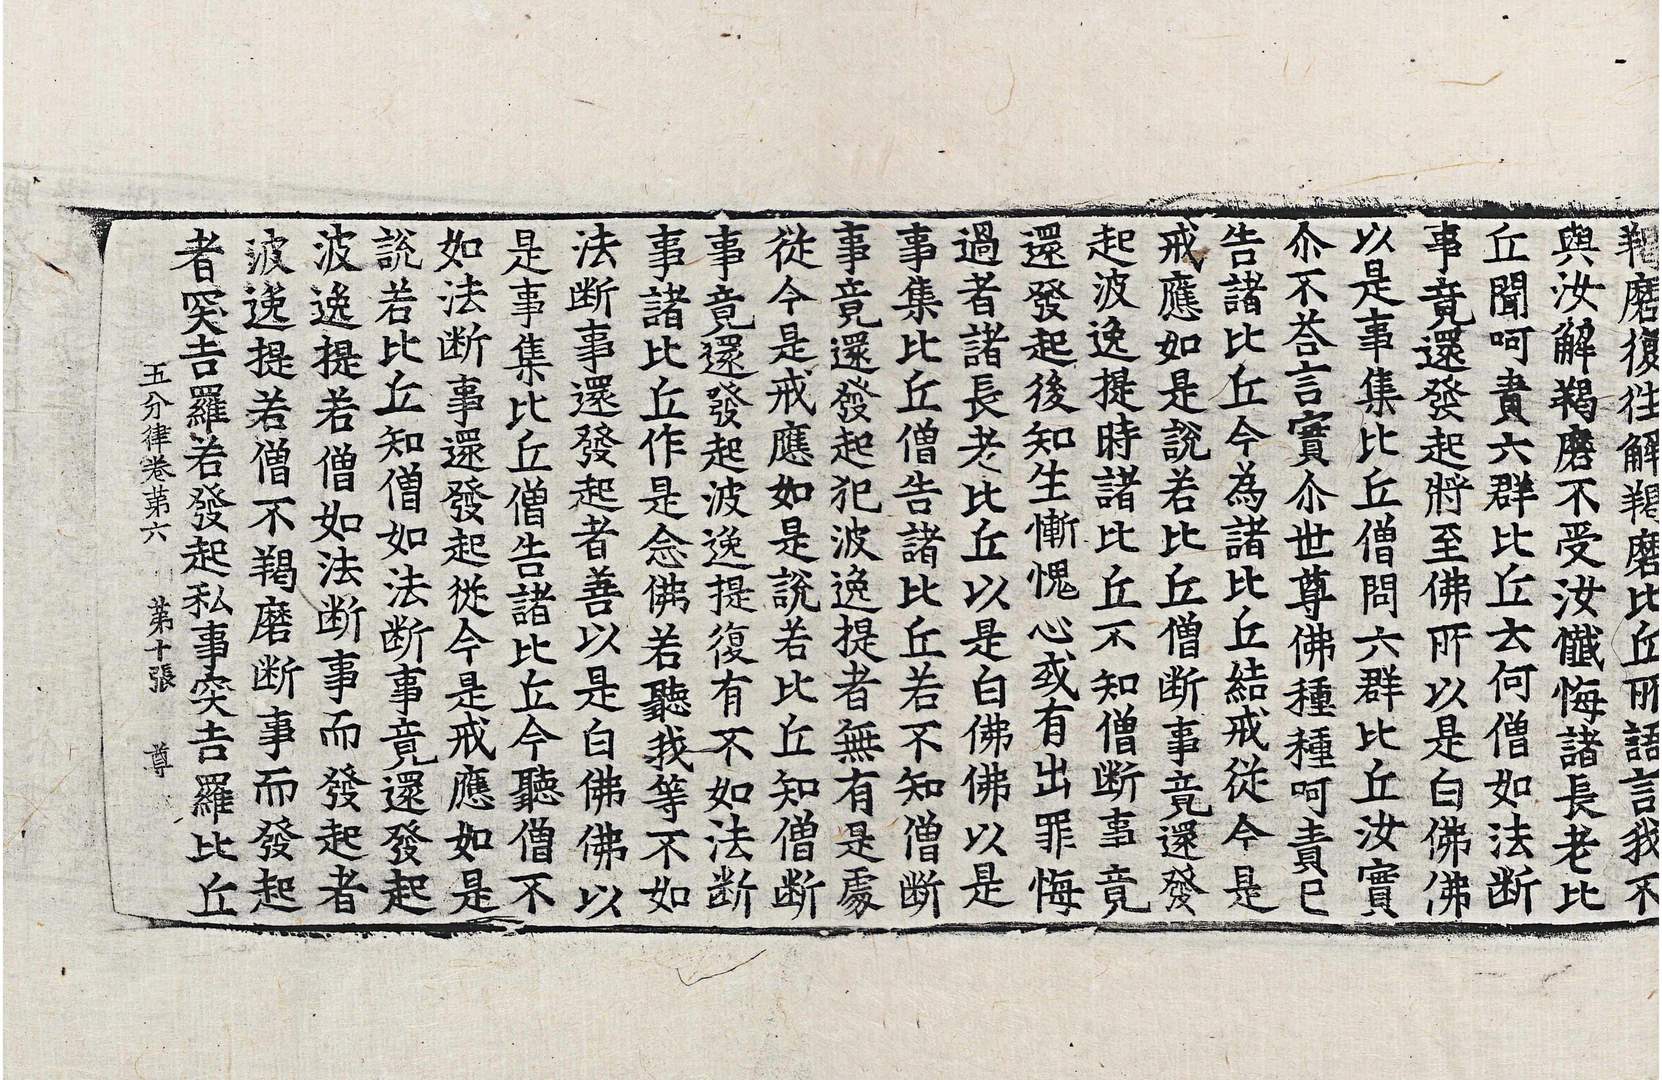 羯磨復往解羯磨比丘所語言我不
與汝解羯磨不受汝懺悔諸長老比
丘聞呵責六群比丘云何僧如法断
事竟還發起將至佛所以是白佛佛
以是事集比丘僧問六群比丘汝實
尒不荅言實尒世尊佛種種呵責已
告諸比丘今為諸比丘結戒從今是
戒應如是說若比丘僧断事竟還發
起波逸提時諸比丘不知僧断事竟
還發起後知生慚愧心或有出罪悔
過者諸長老比丘以是白佛佛以是
事集比丘僧告諸比丘若不知僧断
事竟還發起犯波逸提者無有是處
從今是戒應如是說若比丘知僧断
事竟還發起波逸提復有不如法断
事諸比丘作是念佛若聽我等不如
法断事還發起者善以是白佛佛以
是事集比丘僧告諸比丘今聽僧不
如法断事還發起從今是戒應如是
說若比丘知僧如法断事竟還發起
波逸提若僧如法断事而發起者
波逸提若僧不羯磨断事而發起
者突吉羅若發起私事突吉羅比丘
五分律卷第六 第十張 尊